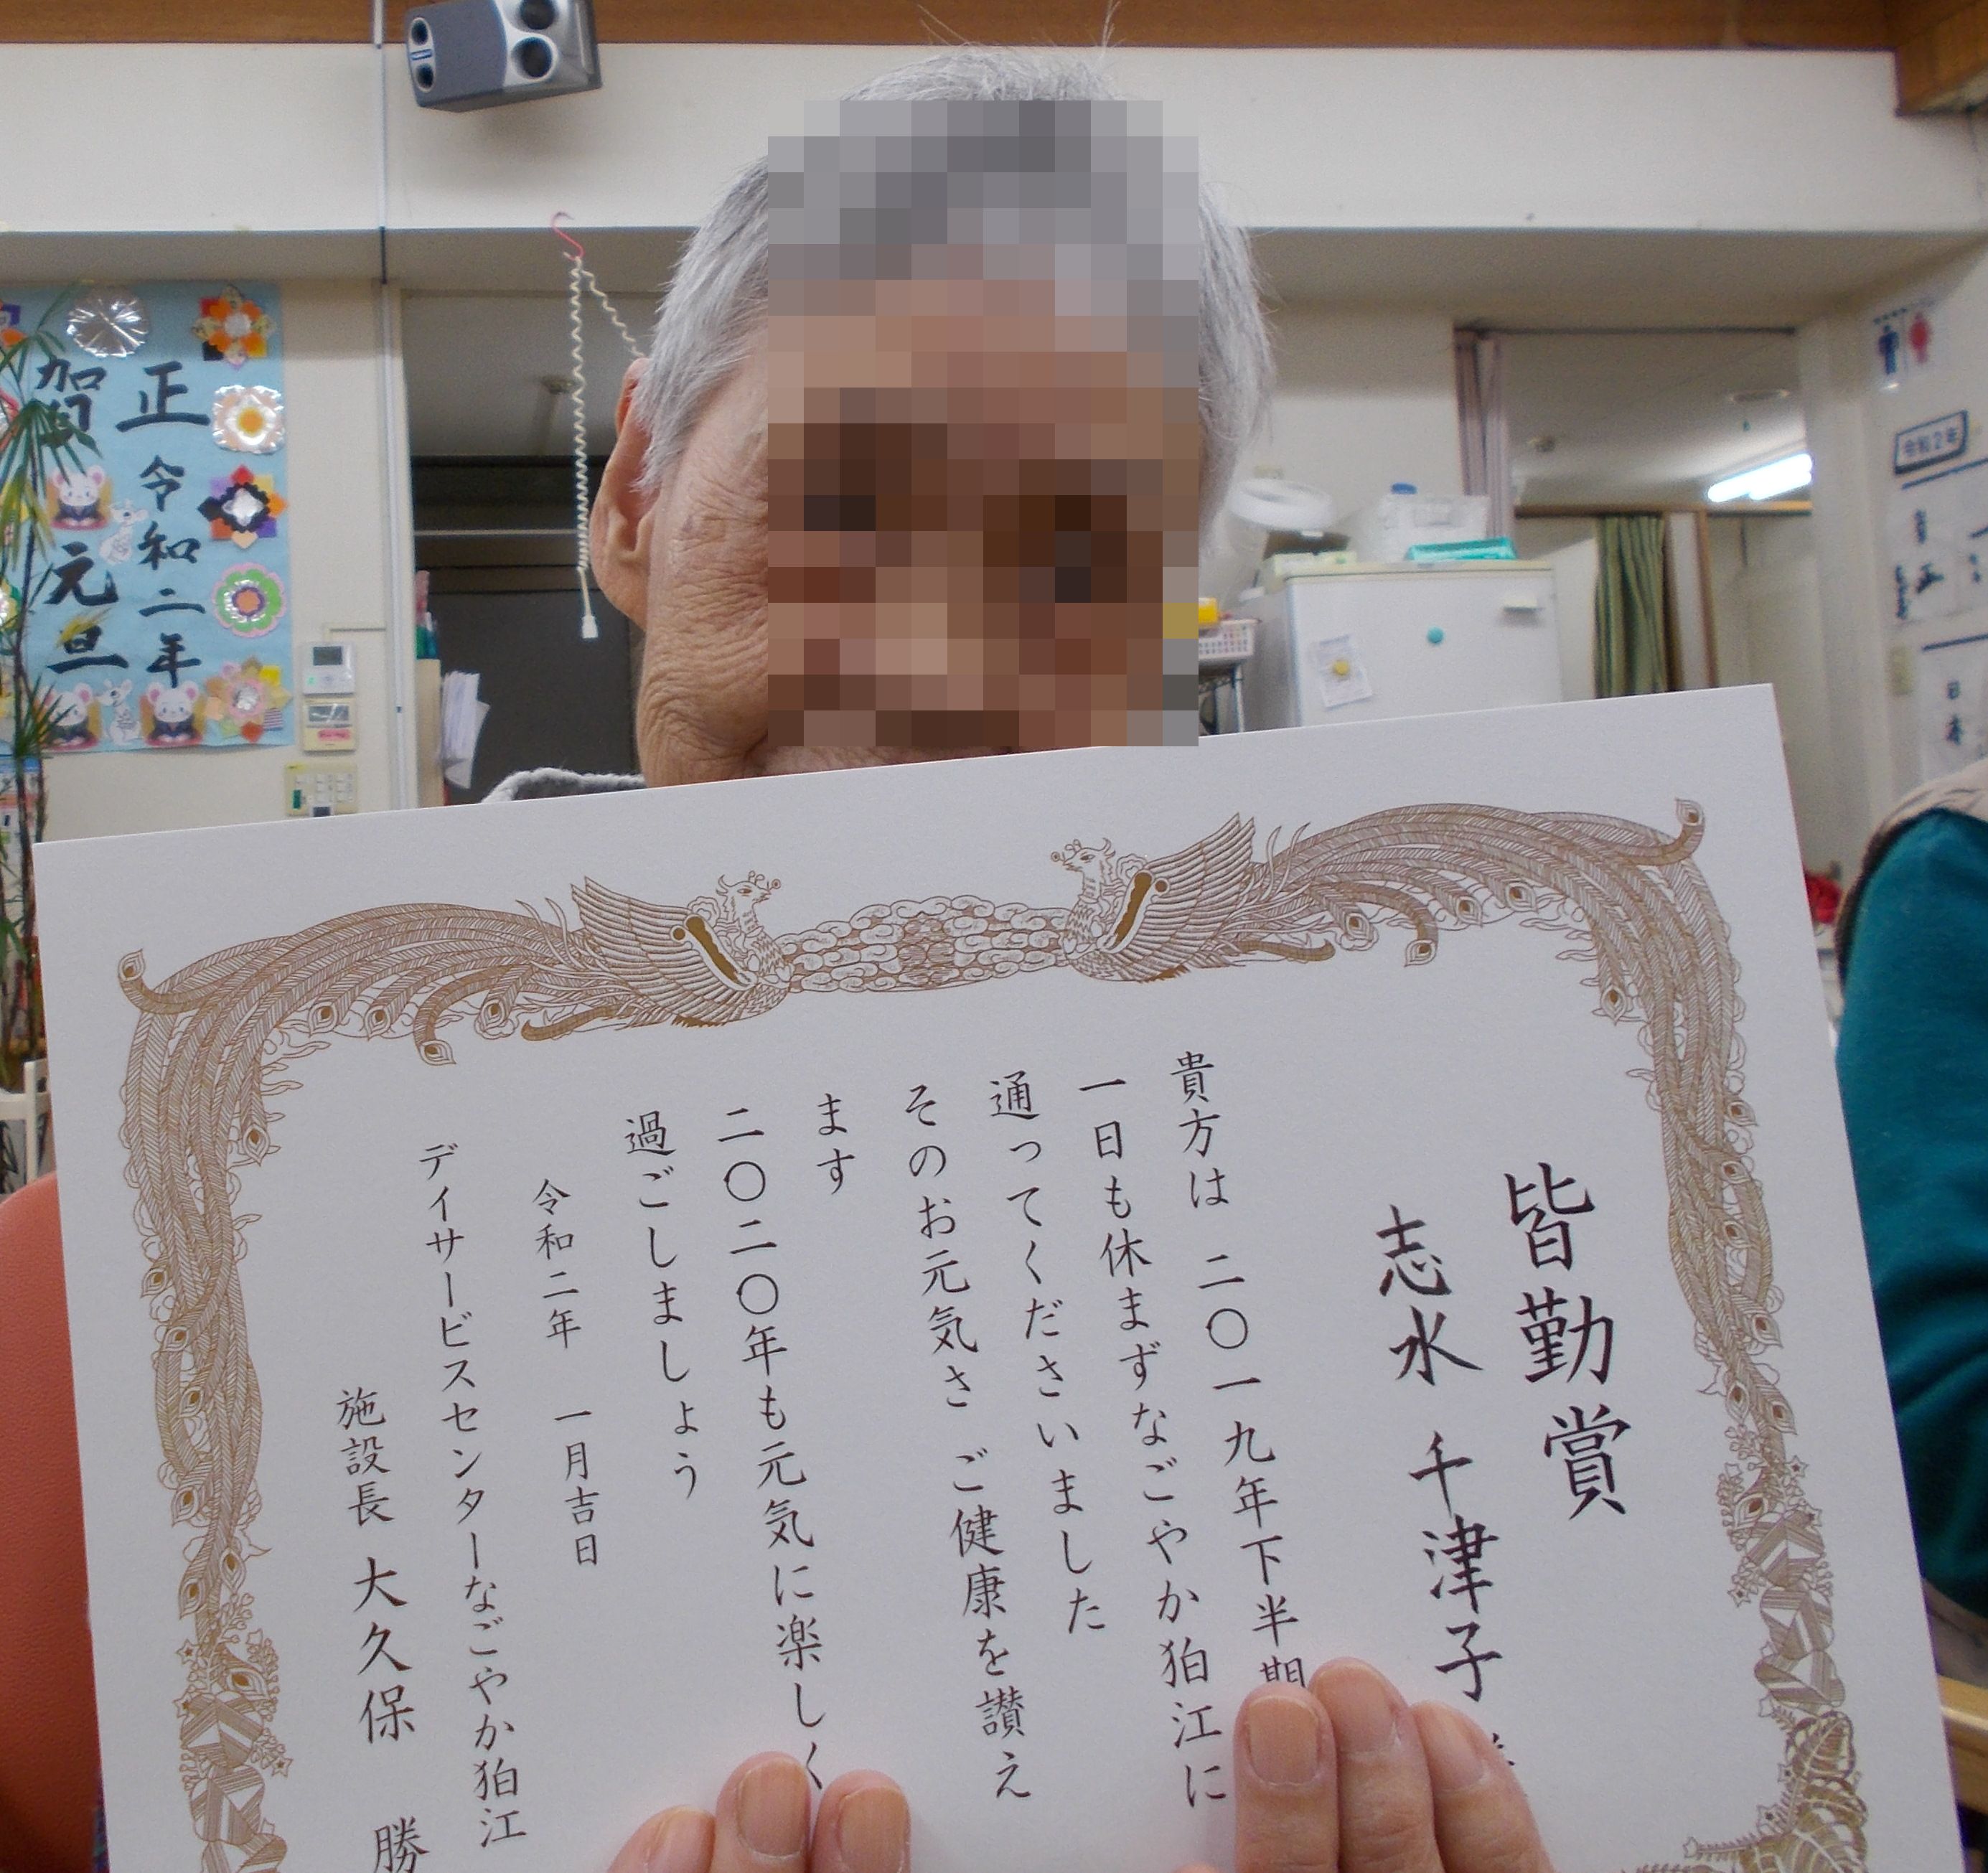 皆勤賞
志水 千津子
貴方は 二〇一九年下半期
一日も休まずなごやか狛江に
通ってくださいました
そのお元気さ ご健康を讃え
ます
二〇二〇年も元気に楽しく
過ごしましょう
令和二年 一月吉日
デイサービスセンターなごやか狛江
施設長 大久保 勝
正
賀
令和二年
元旦
令和2年
日本